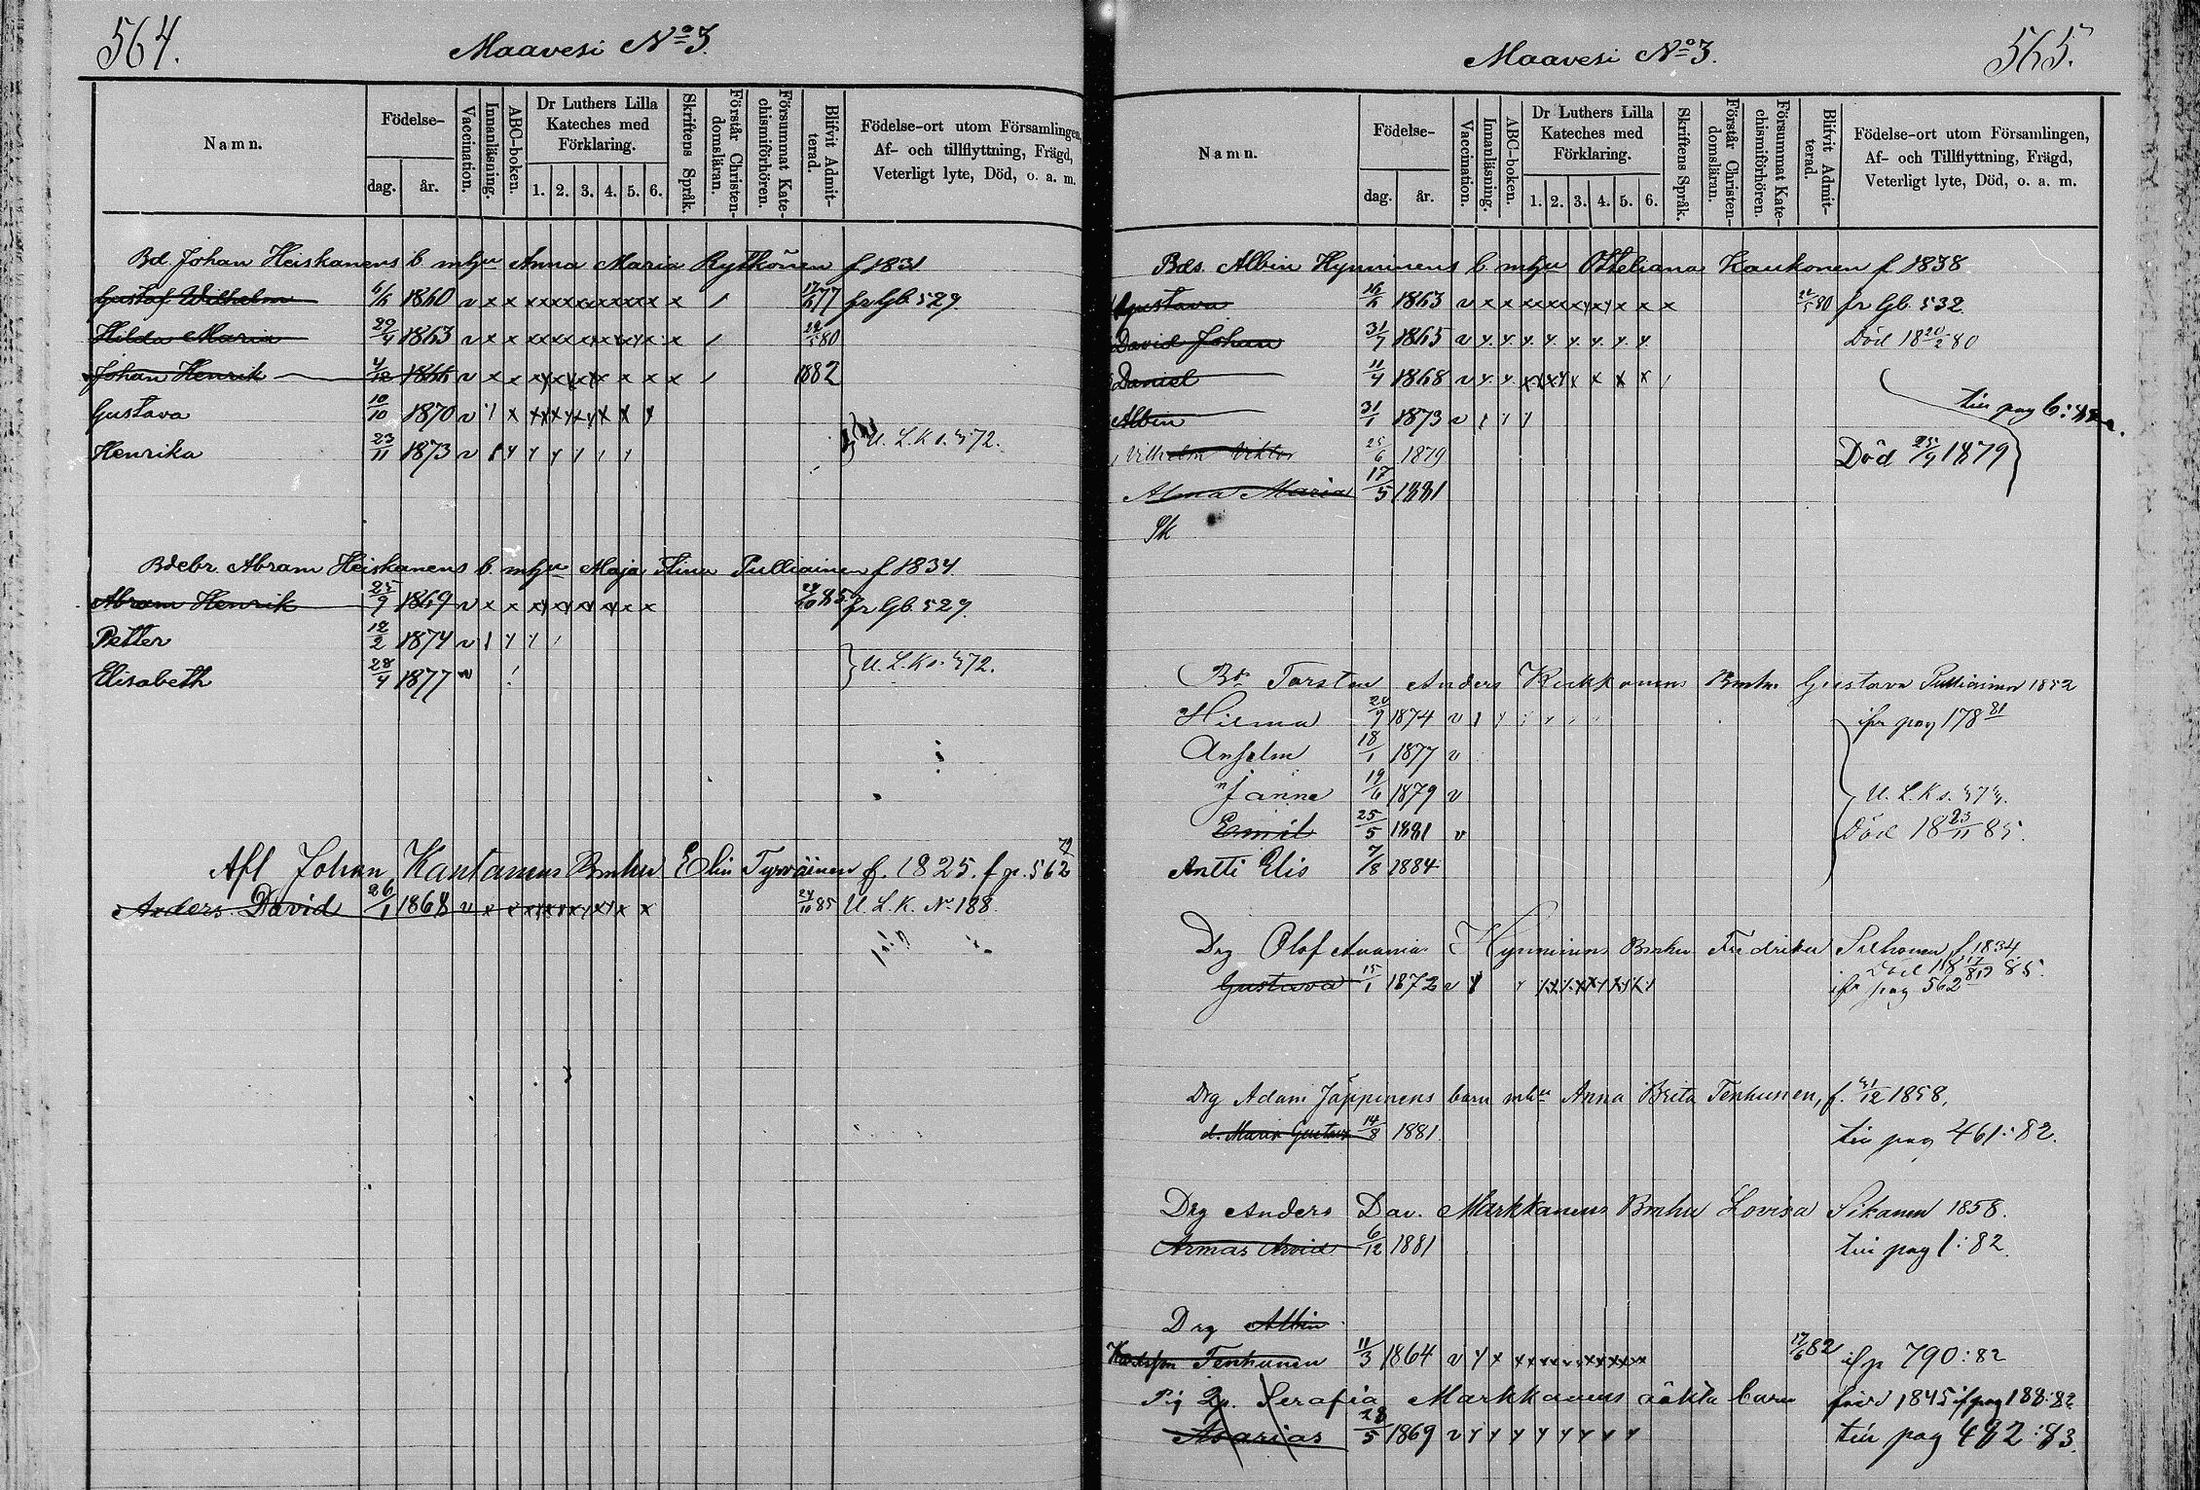 564.
Maavesi No 3.
Namn.
Födelse-
dag.
år.
Vaccination.
Innanläsning.
ABC-boken.
Dr Luthers Lilla Kateches med Förklaring.
1. 2. 3. 4. 5. 6.
Skriftens Språk.
Förstår Christendomsläran.
Försummat Katechismiförhören.
Blifvit Admitterad.
Födelse-ort utom Församlingen,
Af- och tillflyttning, Frägd,
Veterligt lyte, Död, o. a. m.
Bd Johan Heiskanens b. mhu Anna Maria Rytkönen f 1831
Gustaf Wilhelm 1860 v x x x x x x x x x / 77 fr Gb. 529.
Hilda Maria 29/4 1863 v x x x x x x x x x / 80
Johan Henrik 4/12 1866 v x x x x x x x x x / 1882
Gustava 10/10 1870 v
Henrika 23/11 1873 v U. L. K s. 572.
Bdebr. Abram Heiskanens b. mhu Maja Stina Pulliainen f 1834.
Abram Henrik 25/9 1869 v x x x x x x x x 24/10 85 fr Gb. 529.
Petter 12/2 1874 v
Elisabeth 28/4 1877 v U. L. K s. 572.
Afl Johan Kantanens Bmhu Elin Tyrväinen f. 1825. f p. 562 79
Anders David 26/1 1868 v x x x x x x x x 24/10 85 U. L. K. No 188.
565.
Maavesi No 3.
Namn.
Födelse-
dag.
år.
Vaccination.
Innanläsning.
ABC-boken.
Dr Luthers Lilla Kateches med Förklaring.
1. 2. 3. 4. 5. 6.
Skriftens Språk.
Förstår Christendomsläran.
Försummat Katechismiförhören.
Blifvit Admitterad.
Födelse-ort utom Församlingen,
Af- och Tillflyttning, Frägd,
Veterligt lyte, Död, o. a. m.
Bds. Albin Hynninens b mhu Otteliana Kaukonen f 1838
Gustava 1863 v x x x x x x x x x 80 fr Gb. 532.
David Johan 31/7 1865 v Död 18 20/2 80
Daniel 11/4 1868 v
Albin 31/1 1873 v till pag 6:
Vilhelm Viktor 25/6 1879 Död 25/9 1879
Alma Maria 17/5 1881
Sk
Bd Torsten Anders Kukkonens Bmhu Gustava Pulliainen 1852
Hilma 20/9 1874 v ifr pag 178 81
Anselm 18/1 1877 v
Janne 19/6 1879 v U. L. K s. 573.
Emil 25/5 1881 v Död 18 23/11 85.
Antti Elis 7/8 1884
Drg Olof Anania Hynninens Bmhu Fredrika Silhonen f 1834
Gustava 15/1 1872 v ifr pag 562 Död 18 17/8 85.
Drg Adam Jäppinens barn mhu Anna Brita Tenhunen, f. 31/12 1858.
d. Maria Gustava 14/8 1881 till pag 461:82.
Drg Anders Dav. Markkanens Bmhu Lovisa Sikanen 1858.
Armas Arvid 6/12 1881 till pag 1:82.
Drg Albin
Tenhunen 11/3 1864 v x x x x x x x x 17/6 82 if p 790:82
Pig Serafia Markkanens oäkta barn född 1845 if pag 188:82
Asarias 28/5 1869 v till pag 482:83.